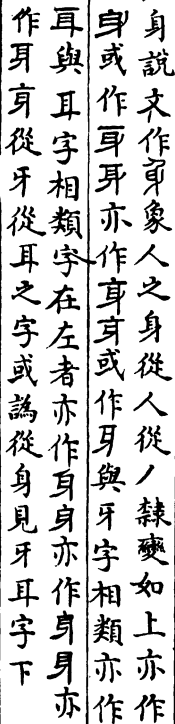 身說文作象人之身從人從丿隸變如上亦作
身或作耳亦作或作與牙字相類亦作
與耳字相類字在左者亦作身亦作身亦
作從牙從耳之字或譌從身見牙耳字下